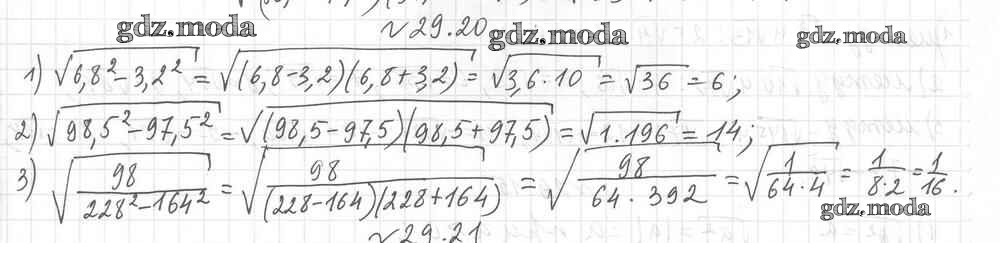 № 29.20
gdz.moda gdz.moda gdz.moda
1) √(6,8² - 3,2²) = √((6,8-3,2)(6,8+3,2)) = √(3,6·10) = √36 = 6;
2) √(98,5² - 97,5²) = √((98,5-97,5)(98,5+97,5)) = √(1·196) = 14;
3) √(98/(228² - 164²)) = √(98/((228-164)(228+164))) = √(98/(64·392)) = √(1/(64·4)) = 1/(8·2) = 1/16.
gdz.moda
№ 29.21